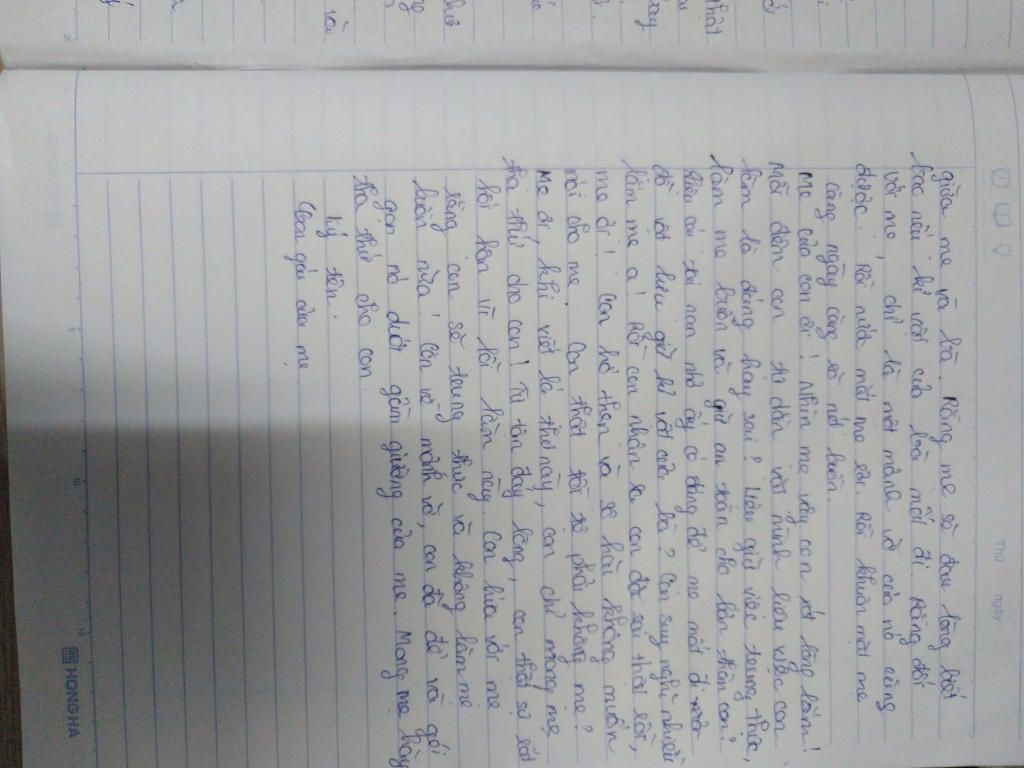 Thứ ngày
giữa mẹ và bà. Rằng mẹ sẽ đau lòng biết
bao nếu kỉ vật của bà mất đi. Rằng đối
với mẹ, chỉ là một mảnh vỡ của nó cũng
được. Rồi nước mắt mẹ rơi. Rồi khuôn mặt mẹ
càng ngày càng rõ nét buồn.
Mẹ của con ơi! Nhìn mẹ vậy con xót lòng lắm!
Mỗi đêm con tự dằn vặt mình liệu việc con
làm là đúng hay sai? Liệu giữa việc trung thực,
làm mẹ buồn và giữ an toàn cho bản thân con?
Liệu cái tôi non nớt ấy có đáng để mẹ mất đi một
đồ vật lưu giữ kỉ vật của bà? Con suy nghĩ nhiều
lắm mẹ ạ! Rồi con nhận ra con đã sai thật rồi,
mẹ ơi! Con hổ thẹn và sợ hãi không muốn
nói cho mẹ. Con thật tồi tệ phải không mẹ?
Mẹ ơi, khi viết lá thư này, con chỉ mong mẹ
tha thứ cho con! Từ tận đáy lòng, con thật sự rất
hối hận vì lỗi lầm này. Con hứa với mẹ
rằng con sẽ trung thực và không làm mẹ
buồn nữa! Còn về mảnh vỡ, con đã để và gói
gọn nó dưới gầm giường của mẹ. Mong mẹ hãy
tha thứ cho con.
Ký tên.
Con gái của mẹ
5
10
15
HONG HA